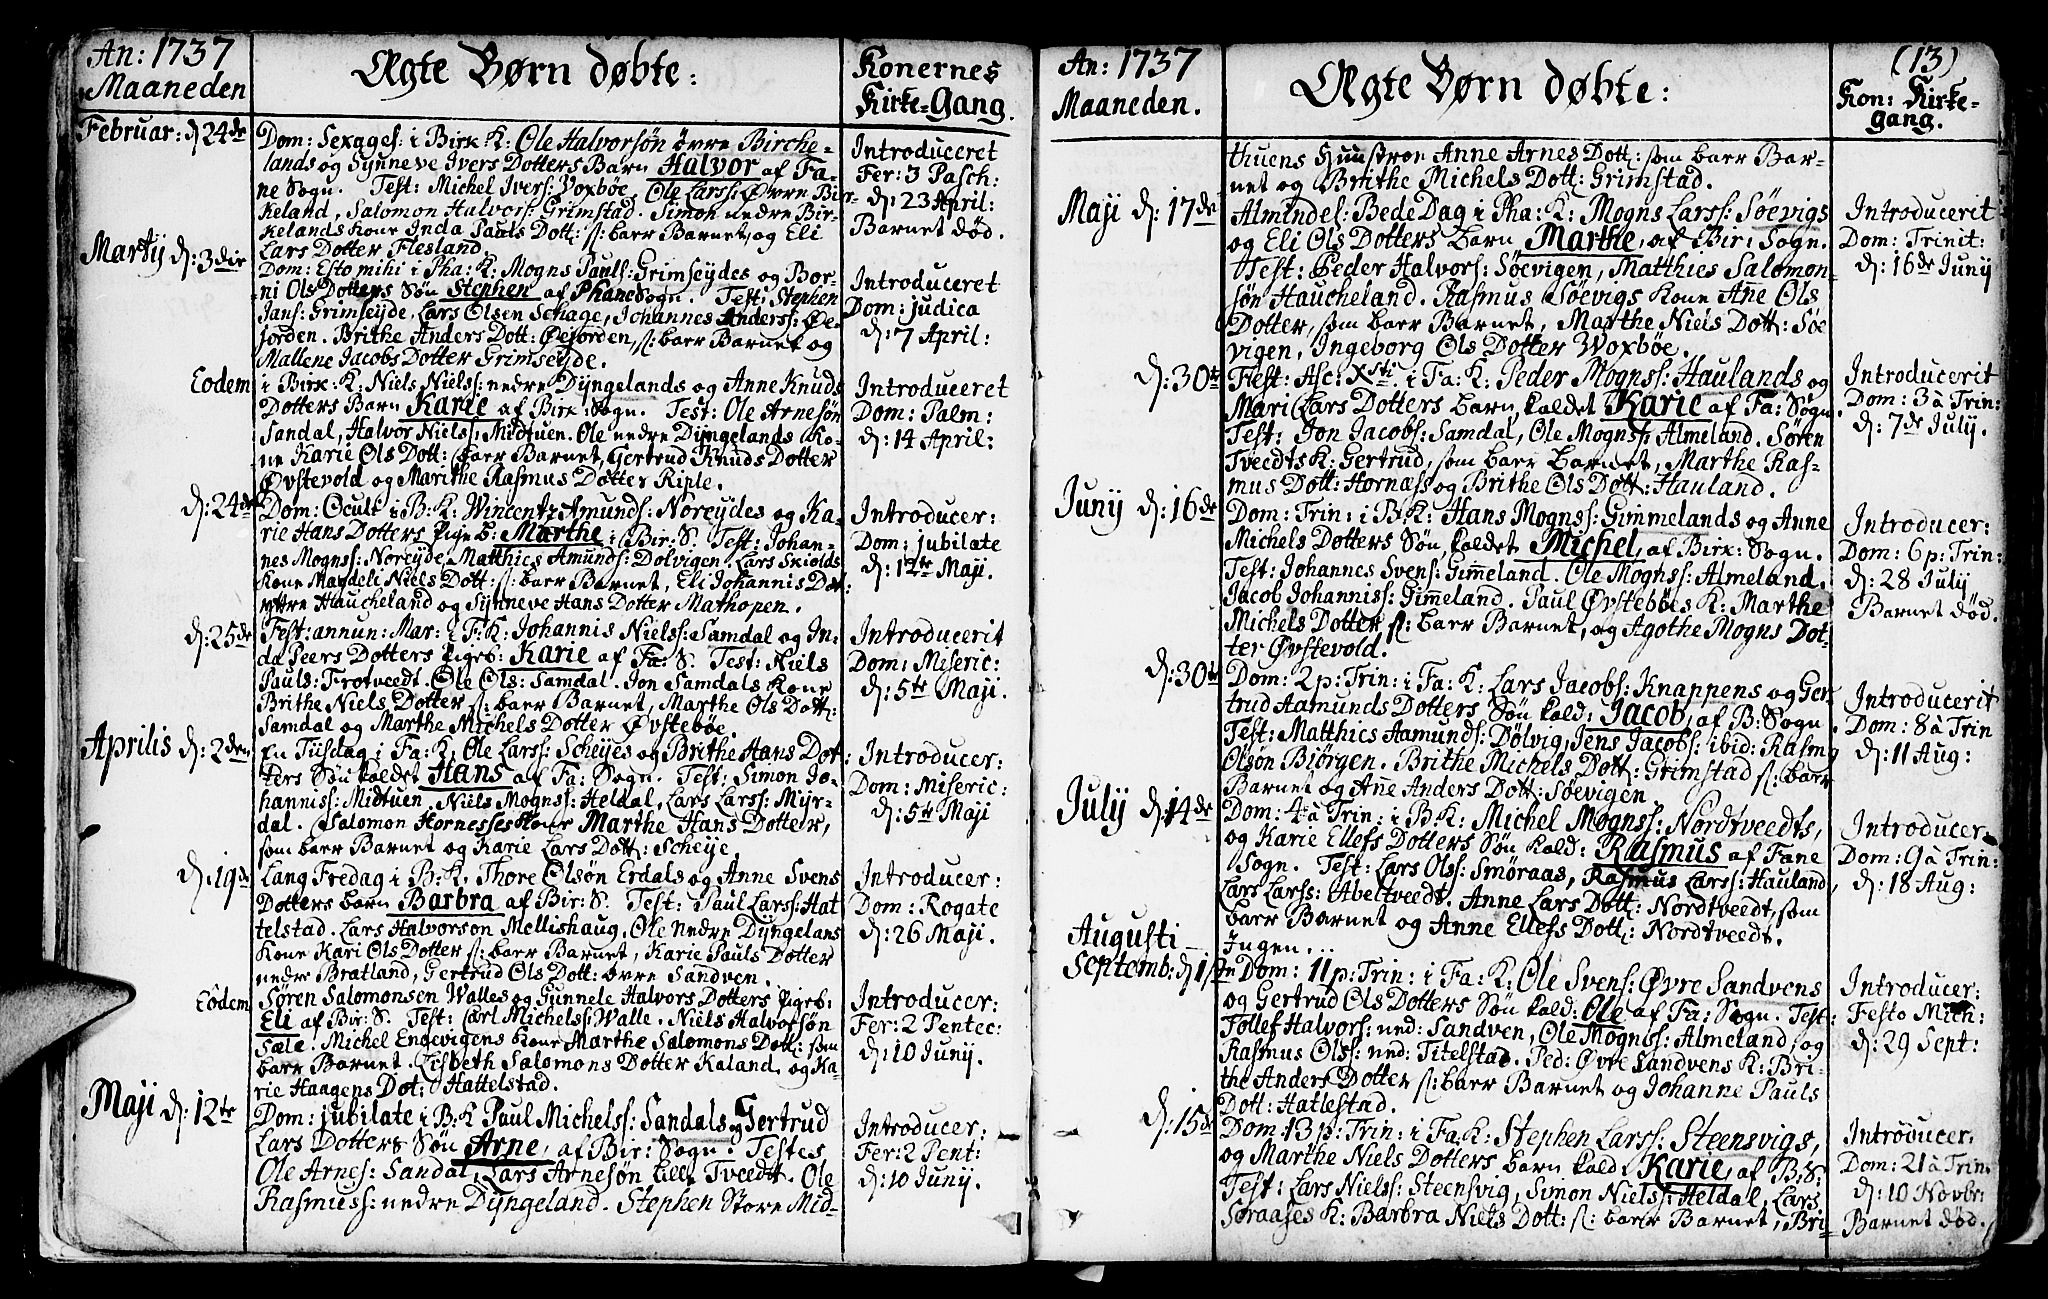 An: 1737
Maaneden
Ægte Børn døbte:
Konernes
Kirke-Gang.
Februar: d. 24de
Dom: Sexages: i Birk K: Ole Halvorsøn øvre Birche-
lands og Synneve Ivers Dotters Barn Halvor af Fa-
ne Sogn. Test: Michel Ivers: Voxbøe, Ole Larss: Øvre Bir-
keland, Salomon Halvors: Grimstad. Simon nedre Bir-
kelands Kone Inda Pauls Dott: s: barr Barnet, og Eli
Lars Dotter Flesland.
Introduceret
Fer: 3 Pasch:
d: 23 April:
Barnet død.
Martij d: 3die
Dom: Esto mihi i Pha: K: Mogns Pauls: Grimseydes og Bor-
ni Ols Dotters Søn Stephen af Phane Sogn. Test: Stephen
Jans: Grimseyde, Lars Olsen Schage, Johannes Anderss: Øe-
jorden. Brithe Anders Dott: Øejorden, s: barr Barnet og
Mallene Jacobs Dotter Grimseyde.
Introduceret
Dom: judica
d: 7 April:
Eodem
i Birk: K: Niels Niels: nedre Dyngelands og Anne Knuds
Dotters Barn Karie af Birk: Sogn. Test: Ole Arnesøn
Sandal, Halvor Niels: Midtuen. Ole nedre Dyngelands Ko-
ne Karie Ols Dott: s: barr Barnet, Gertrud Knuds Dotter
Øvstevold og Marithe Rasmus Dotter Riple.
Introduceret
Dom: Palm:
d: 14 April:
d: 24de
Dom: Oculi i B: K: Wincentz Amunds: Noreydes og Ka-
rie Hans Dotters Pige b: Marthe i Bir: S. Test: Johan-
nes Mogns: Noreyde, Matthies Amunds: Dolvigen. Lars Skiolds
Kone Mardeli Niels Dott: s: barr Barnet, Eli Johannis Dot:
yttre Haucheland og Synneve Hans Dotter Mathopen.
Introducer:
Dom: jubilate
d: 12te Maji.
d: 25de
Fest: annun: Mar: i F: K: Johannis Niels: Samdal og In-
da Peers Dotters Pigeb: Karie af Fa: S. Test: Niels
Pauls: Frotveedt. Ole Ols: Samdal. Jon Samdals Kone
Brithe Niels Dotter s: barr Barnet, Marthe Ols Dott:
Samdal og Marthe Michels Dotter Øvstebøe.
Introducerit
Dom: Miseric:
d: 5te Maji.
Aprilis d: 2den
En Tijsdag i Fa: K. Ole Larss: Scheijes og Brithe Hans Dot-
ters Søn kaldet Hans af Fa: Sogn. Test: Simon Jo-
hanniss: Midtuen. Niels Mognss: Heldal, Lars Larss: Myr-
dal. Salomon Hornesses Kone Marthe Hans Dotter,
som barr Barnet og Karie Lars Dott: Scheije
Introducer:
Dom: Miseric:
d: 5te Maji
d: 19de
Lang Fredag i B: K. Thore Olsøn Erdals og Anne Svens
Dotters barn Barbra af Bir: S. Test: Paul Larss: Hat
telstad. Lars Halvorson Mellishaug. Ole nedre Dyngelans
Kone Kari Ols Dotter s: barr Barnet, Karie Pauls Dotter
nedre Bratland, Gertrud Ols Dott: øvre Sandven.
Introducer:
Dom: Rogate
d: 26 Maji.
Eodem
Søren Salomonsen Walles og Gunnele Halvors Dotters Pigeb:
Eli af Bir: S. Test: Carl Michelss: Walle. Niels Halvorsøn
Sæle. Michel Engevigens Kone Marthe Salomons Dott: som
barr Barnet. Lisbeth Salomons Dotter Kaland og Ka-
rie Haagens Dot: Hattelstad.
Introducer:
Fer: 2 Pentec:
d: 10 Junij.
Maji d: 12te
Dom: jubilate i B: K Paul Michelss: Sandals og Gertrud
Lars Dotters Søn Arne, af Bir: Sogn. Testes
Ole Arnes: Sandal, Lars Arnesøn Lille Tveedt. Ole
Rasmuss: nedre Dyngeland. Stephen Store Mid-
Introducer:
Fer: 2 Pent:
d: 10 Junij.
An: 1737
Maaneden.
Ægte Børn døbte:
(13)
Kon: Kirke-
gang.
thuens Hunstroe Anne Arnes Dott: som barr Bar-
net og Brithe Michels Dott: Grimstad.
Maji d: 17de
Almindel: Bede Dag i Pha: K: Mogns Larss: Søevigs
og Eli Ols Dotters barn Marthe, af Bir: Sogn.
Test: Peder Halvors: Søevigen, Matthies Salomon-
søn Haucheland. Rasmus Søevigs Kone Ane Ols
Dotter, som barr Barnet, Marthe Niels Dott: Søe
vigen, Ingeborg Ols Dotter Woxbøe.
Introducerit
Dom: Trinit:
d: 16de Junij
d: 30te
Fest: Asc: Xsti. i Fa: K: Peder Mognss: Haulands og
Mari Lars Dotters barn, kaldet Karie af Fa: Sogn.
Test: Jon Jacobs: Samdal, Ole Mognss: Almeland. Søren
Tveedts K: Gertrud, som barr Barnet, Marthe Ras-
mus Dott: Hornæss og Brithe Ols Dott: Hauland.
Introducerit
Dom: 3 à Trin:
d: 7de Julij.
Junij d: 16de
Dom: Trin: i B: K: Hans Mognss: Gimmelands og Anne
Michels Dotters Søn, kaldet Michel, af Birk: Sogn.
Test: Johannes Svens: Gimeland. Ole Mognss: Almeland.
Jacob Johanniss: Gimeland. Paul Øvstebøes K: Marthe
Michels Dotter s: barr Barnet, og Agothe Mogns Dot-
ter Øvstevold.
Introducer:
Dom: 6 p: Trin:
d: 28 Julij
Barnet død.
d: 30te
Dom: 2 p: Trin: i Fa: K: Lars Jacobs: Knappens og Ger-
trud Aamunds Dotters Søn kald: Jacob, af B: Sogn
Test: Matthies Aamunds: Dolvig, Jens Jacobs: ibid: Rasmg
Olsøn Biørgen. Brithe Michels Dott: Grimstad s: barr
Barnet og Ane Anders Dott: Søevigen.
Introducerit
Dom: 8 à Trin
d: 11 Aug:
Julij d: 14de
Dom: 4 à Trin: i B: K: Michel Mognss: Nordtveedts,
og Karie Ellefs Dotters Søn kald: Rasmus af Fane
Sogn. Test: Lars Olss: Smøraas, Rasmus Larss: Hauland,
Lars Larss: Abeltveedt. Anne Lars Dott: Nordtveedt, som
barr Barnet og Anne Ellefs Dott: Nordtveedt.
Introducer:
Dom: 9 à Trin:
d: 18 Aug:
Augusti
Ingen...
Septemb: d: 1ste
Dom: 11 p: Trin: i Fa: K: Ole Svens: Øvre Sandvens
og Gertrud Ols Dotters Søn kald: Ole af Fa: Sogn. Test:
Tollef Halvors: ned: Sandven, Ole Mognss: Almeland, og
Rasmus Olss: ned: Titelstad. Ped: Øvre Sandvens K: Bri-
the Anders Dotter s: barr Barnet og Johanne Pauls
Dott: Hatlestad.
Introducer:
Festo Mich:
d: 29 Sept:
d: 15de
Dom: 13 p: Trin: i Fa: K: Stephen Larss: Steensvigs,
og Marthe Niels Dotters barn kald. Karie, af B: S:
Test: Lars Nielss: Steensvig, Simon Niels: Heldal, Lars
Søraases K: Barbra Niels Dott: s: barr Barnet, Bri-
Introducer:
Dom: 21 à Trin:
d: 10 Novbr:
Barnet død.